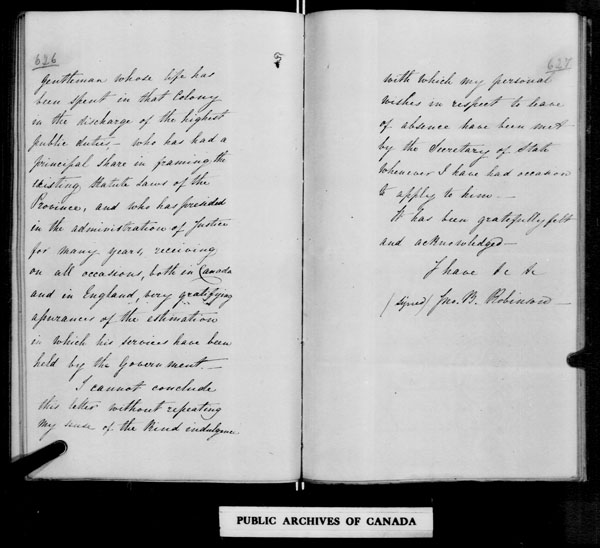 626
gentleman whose life has
been spent in that Colony
in the discharge of the highest
public duties, – who has had a
principal share in framing the
existing Statute Laws of the
Province, and who has presided
in the administration of Justice
for many years, receiving
on all occasions, both in Canada
and in England, very gratifying
assurances of the estimation
in which his services have been
held by the Government. –
I cannot conclude
this letter without repeating
my sense of the kind indulgence
627
with which my personal
wishes in respect to leave
of absence have been met
by the Secretary of State
whenever I have had occasion
to apply to him. –
It has been gratefully felt
and acknowledged –
I have &c &c
(signed) Jno. B. Robinson –
PUBLIC ARCHIVES OF CANADA